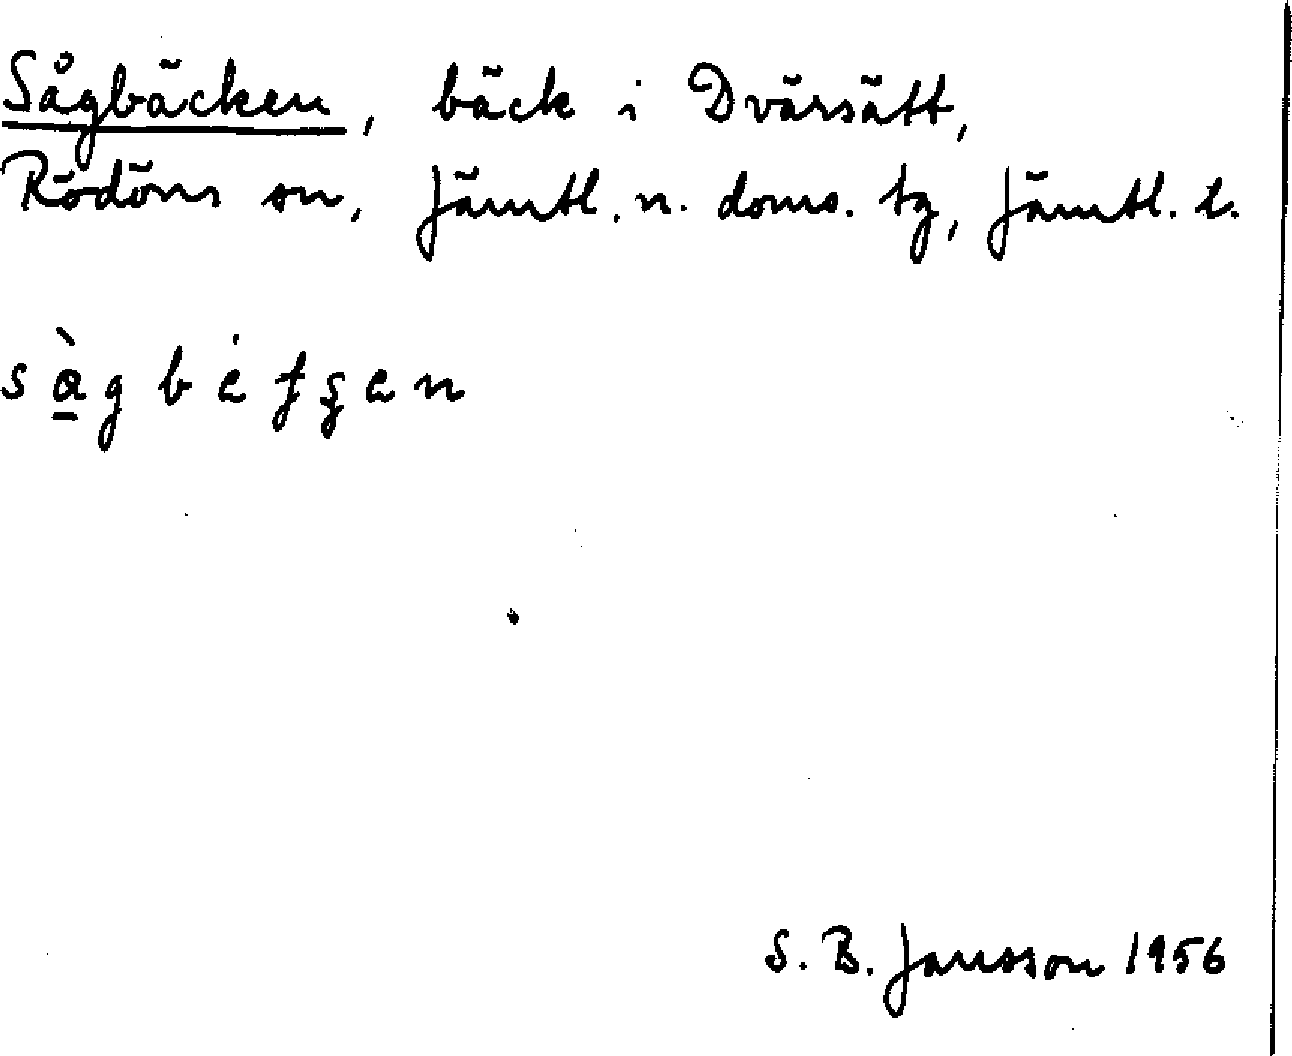 Sågbäcken, bäck i Dvärsätt,
Rödöns sn, Jämtl. n. doms. tg, Jämtl. l.
S. B. Jansson 1956